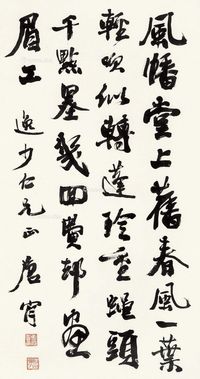 風幡堂上舊春風一葉
輕吹似轉蓬珍重蠅頭
千點墨幾回費却畫
眉工 逸少仁兄正 唐肯